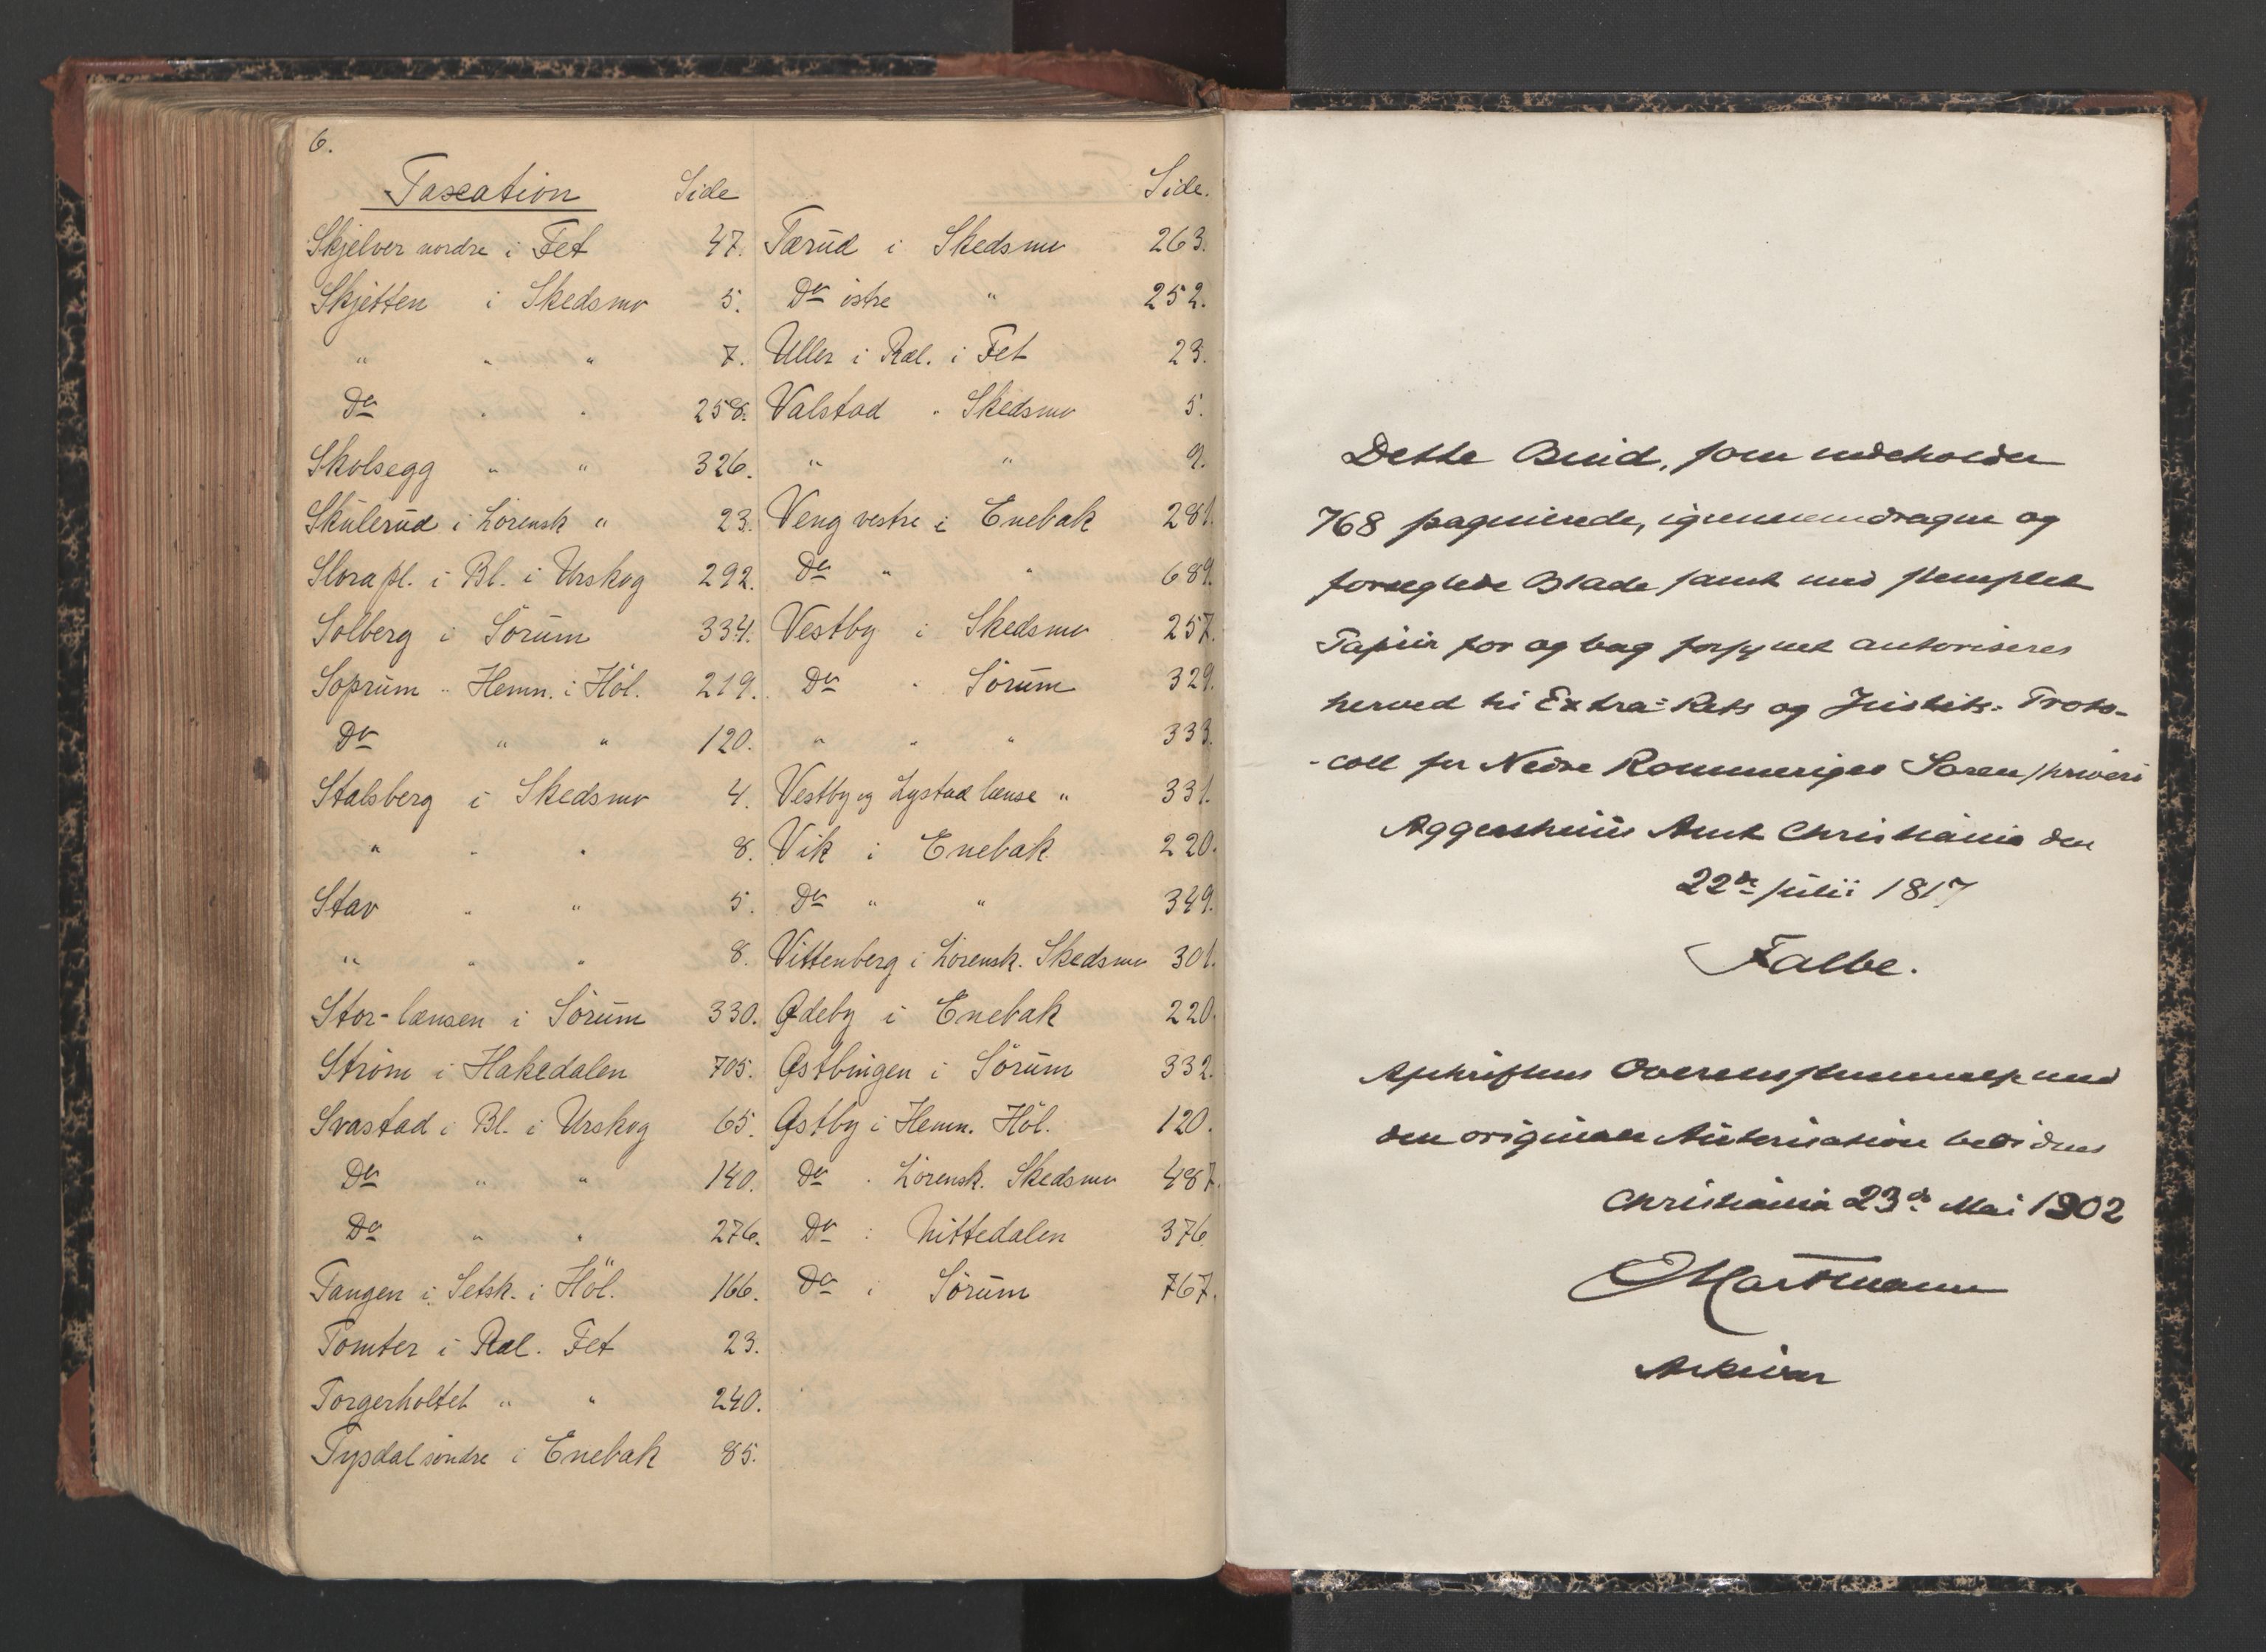 6.
Taxation Side
Skjelver nordre i Fet 47.
Skjetten i Skedsmo 5.
" " " 7.
Do " " 258.
Skolsegg " " 326.
Skulerud i Lorensk " 23.
Slora pl. i Bl. i Urskog 292.
Solberg i Sörum 334.
Soprum " Hemn. i Höl. 219.
Do " " 120.
Stalsberg i Skedsmo 4.
" " " 8.
Stav " " 5.
" " " 8.
Stor-lænsen i Sörum 330.
Ström i Hakedalen 705.
Svastad i Bl. i Urskog 65.
Do " " 140.
Do " " 276.
Tangen i Setsk. i Höl. 166.
Tomter i Ræl. Fet 23.
Torgerholtet " " 240.
Tysdal söndre i Enebak 85.
Side.
Tærud i Skedsmo 263.
Do östre " 252.
Uller i Ræl. i Fet 23.
Valstad " Skedsmo 5.
" " 9.
Veng vestre i Enebak 281.
Do " " 689.
Vestby i Skedsmo 257.
Do " Sörum 329.
" " " 333.
Vestby og Lystad lænse " 331.
Vik i Enebak 220.
Do " " 349.
Vittenberg i Lörensk. Skedsmo 301.
Ødeby i Enebak 220.
Østbingen i Sörum 332.
Østby i Hemn. Höl. 120.
Do " Lörensk. Skedsmo 487.
Do : Nittedalen 376
Do i Sörum 767.
Dette Bind, som indeholder
768 paginerede, igjennemdragne og
forseglede Blade samt med stemplet
Papiir for og bag forsynet autoriseres
herved til Extra=Rets og Justits=Proto-
-coll for Nedre Rommeriges Sorenskriveri
Aggershuus Amt Christiania den
22de julii 1817
Falbe.
Afskriftens Overensstemmelse med
den originale Autorisation bevidnes
Christiania 23de Mai 1902
Hartmann
Arkivar